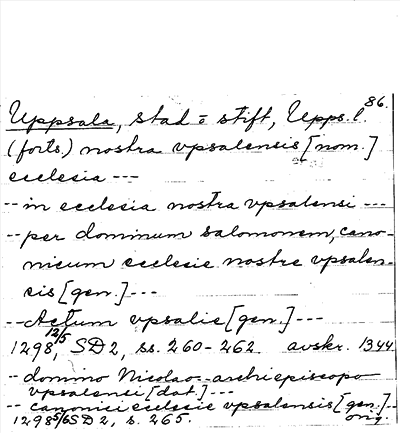 86.
Uppsala, stad o stift, Upps.l.
(forts.) nostra vpsalensis [nom.]
ecclesia ---
-- in ecclesia nostra vpsalensi ---
-- per dominum salomonem, cano-
nicum ecclesie nostre vpsalen-
sis [gen.] ---
-- Actum vpsalie [gen.] ---
1298 12/5, SD 2, ss. 260-262 avskr. 1344
-- domino Nicolao archiepiscopo
vpsalensi [dat.] ---
-- canonici ecclesie vpsalensis [gen.] --
1298 5/6 SD 2, s. 265. orig.